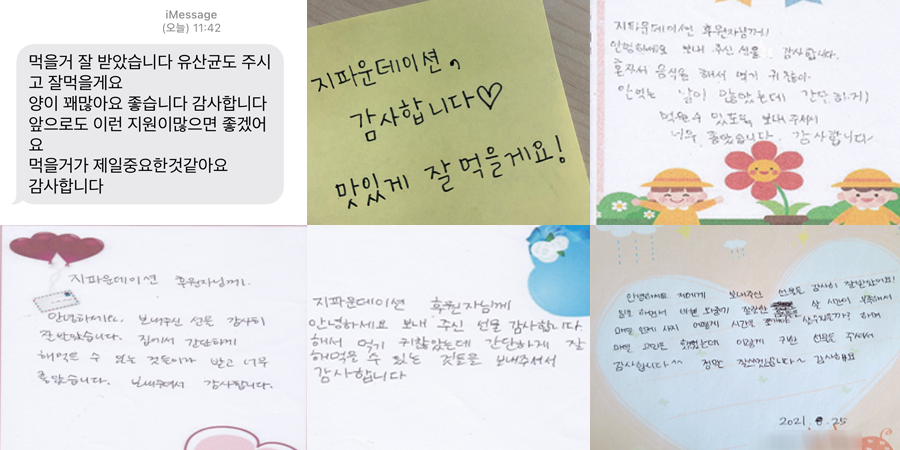 iMessage
(오늘) 11:42
먹을거 잘 받았습니다 유산균도 주시
고 잘먹을게요
양이 꽤많아요 좋습니다 감사합니다
앞으로도 이런 지원이많으면 좋겠어
요
먹을거가 제일중요한것같아요
감사합니다
지파운데이션,
감사합니다♡
맛있게 잘 먹을게요!
지파운데이션 후원자님께!
안녕하세요 보내 주신 선물 감사합니다.
혼자서 음식을 해서 먹기 귀찮아
안먹는 날이 많았는데 간단하게
먹을 수 있도록 보내주셔서
너무 좋았습니다. 감사합니다~
지파운데이션 후원자님께!
안녕하세요. 보내주신 선물 감사히
잘받았습니다. 집에서 간단하게
해먹을 수 있는 것들이라 받고 너무
좋았습니다. 보내주셔서 감사합니다.
지파운데이션 후원자님께
안녕하세요 보내 주신 선물 감사합니다.
해서 먹기 귀찮았는데 간단하게 잘
해먹을 수 있는 것들을 보내주셔서
감사합니다
안녕하세요 저에게 보내주신 선물은 감사히 잘받았어요!
매번 고민은 했었는데 이렇게 주셔서
감사합니다^^ 정말 잘쓰겠습니다~ 감사해요
2021. 25